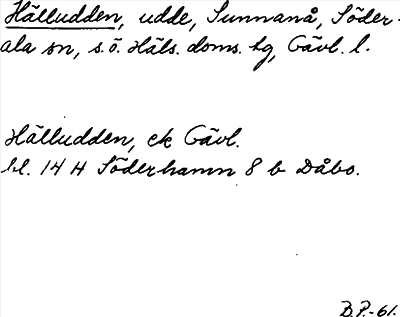 Hälludden, udde, Sunnanå, Söder-
ala sn, s.ö. Häls. doms. tg, Gävl. l.
Hälludden, ek Gävl.
bl. 14 H Söderhamn 8 b Dåbo.
B.P.-61.